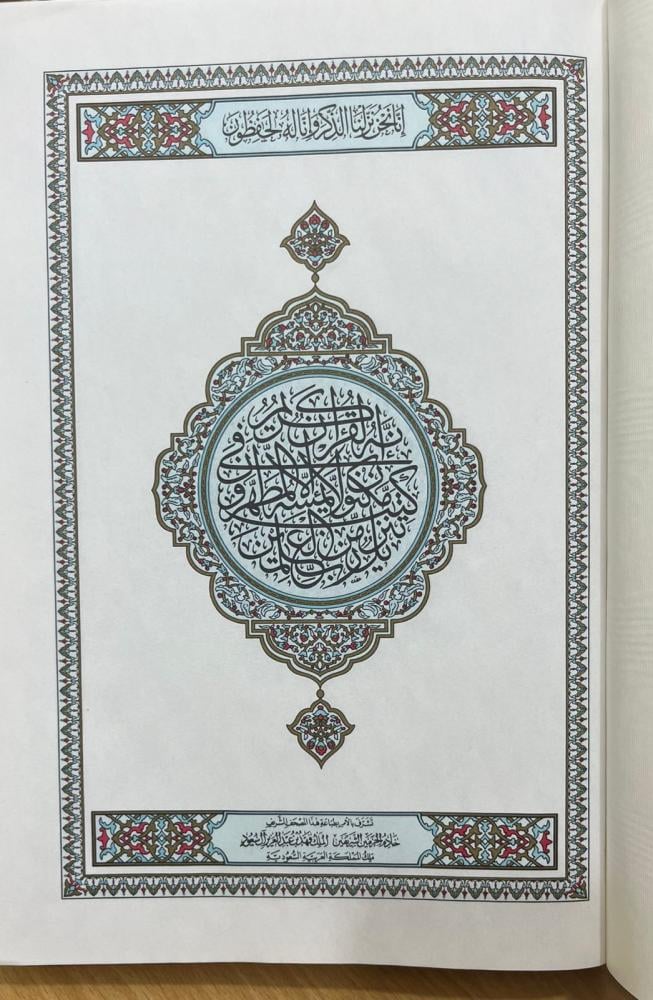 إنا نحن نزلنا الذكر وإنا له لحفظون
إنه لقرءان كريم
في كتب مكنون لا يمسه إلا المطهرون
تنزيل من رب العلمين
تشرف بالأمر بطباعة هذا المصحف الشريف
خادم الحرمين الشريفين الملك فهد بن عبد العزيز آل سعود
ملك المملكة العربية السعودية